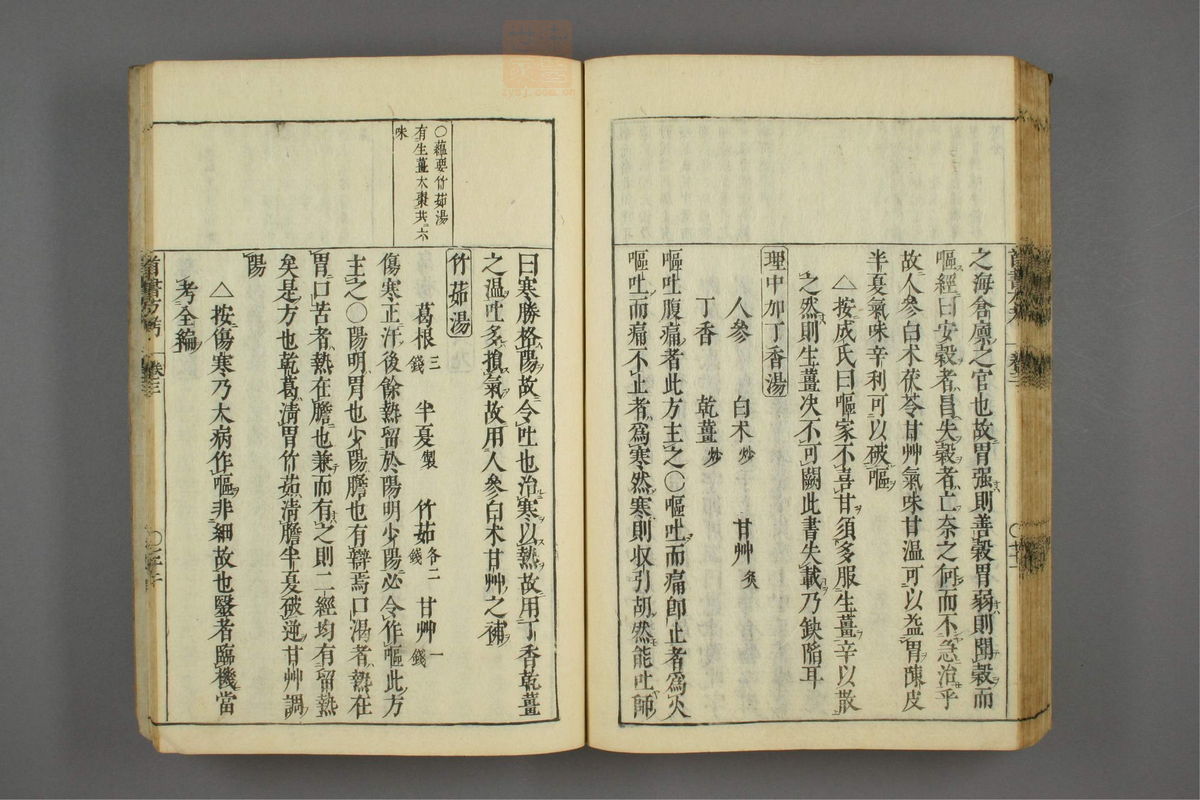 之海倉廩之官也故胃强則善穀胃弱則聞穀而
嘔經曰安穀者昌失穀者亡奈之何而不急治乎
故人參白朮茯苓甘艸氣味甘温可以益胃陳皮
半夏氣味辛利可以破嘔
△按成氏曰嘔家不喜甘須多服生薑辛以散
之然則生薑决不可闕此書失載乃鈌陷耳
理中加丁香湯
人參 白朮炒 甘艸炙
丁香 乾薑炒
嘔吐腹痛者此方主之〇嘔吐而痛卽止者爲火
嘔吐而痛不止者爲寒然寒則収引胡然能吐師
曰寒勝格陽故令吐也治寒以熱故用丁香乾薑
之温吐多損氣故用人參白朮甘艸之補
〇蘊要竹茹湯
有生薑大棗共六
味
竹茹湯
葛根三錢 半夏製 竹茹各二錢 甘艸一錢
傷寒正汗後餘熱留於陽明少陽必令作嘔此方
主之〇陽明胃也少陽膽也有辯焉口渴者熱在
胃口苦者熱在膽也兼而有之則二經均有留熱
矣是方也乾葛清胃竹茹清膽半夏破逆甘艸調
陽
△按傷寒乃大病作嘔非細故也毉者臨機當
考全編